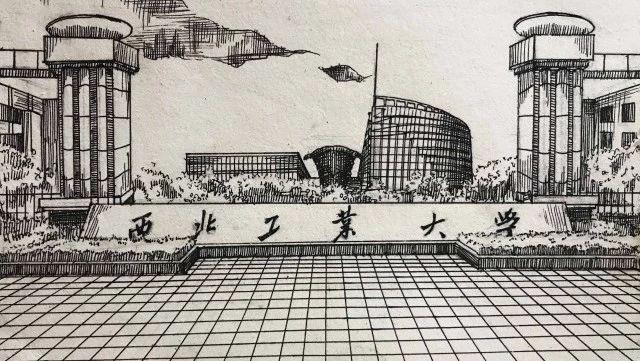 西北工业大学